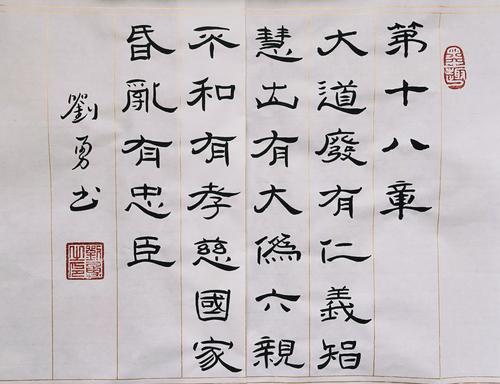 第十八章
大道廢有仁義智
慧出有大偽六親
不和有孝慈國家
昏亂有忠臣
劉勇书
劉勇之印